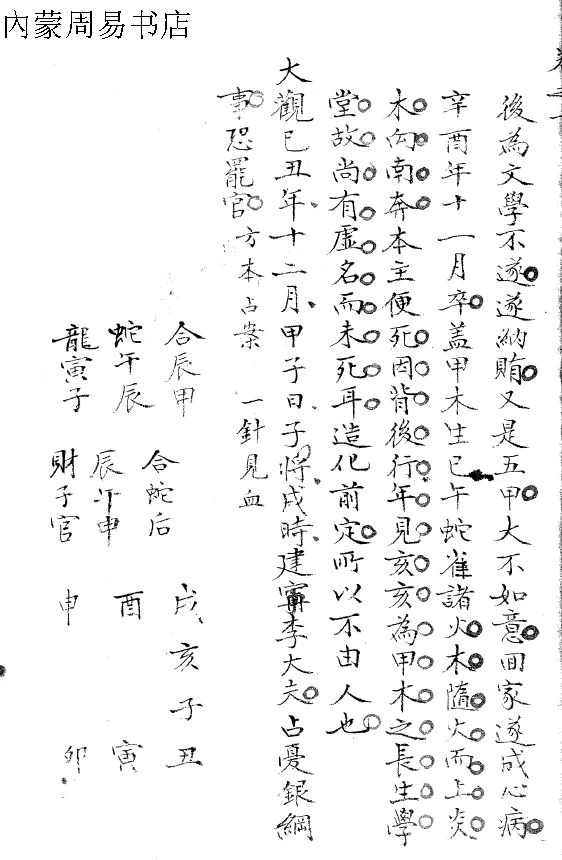 內蒙周易书店
後為文學不遂遂納賄又是五甲大不如意回家遂成心病
辛酉年十一月卒盖甲木生巳午蛇雀諸火木隨火而上炎
木向南奔本主便死因背後行年見亥亥為甲木之長生學
堂故尚有虛名而未死耳造化前定所以不由人也
大觀已丑年十二月甲子日子將戌時建寧李大夫占憂銀綱
事恐罷官方本占案 一針見血
合辰甲 合蛇后 戌亥子丑
蛇午辰 辰午申 酉 寅
龍寅子 財子官 申 卯